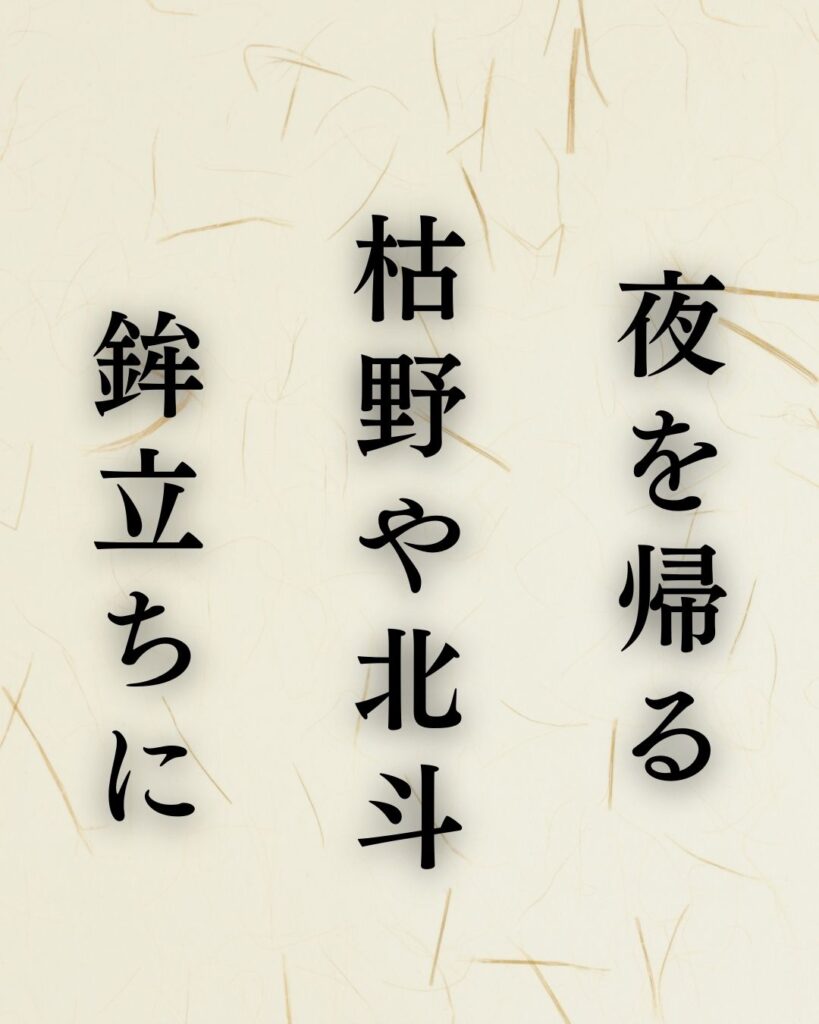 夜を帰る
枯野や北斗
鉾立ちに